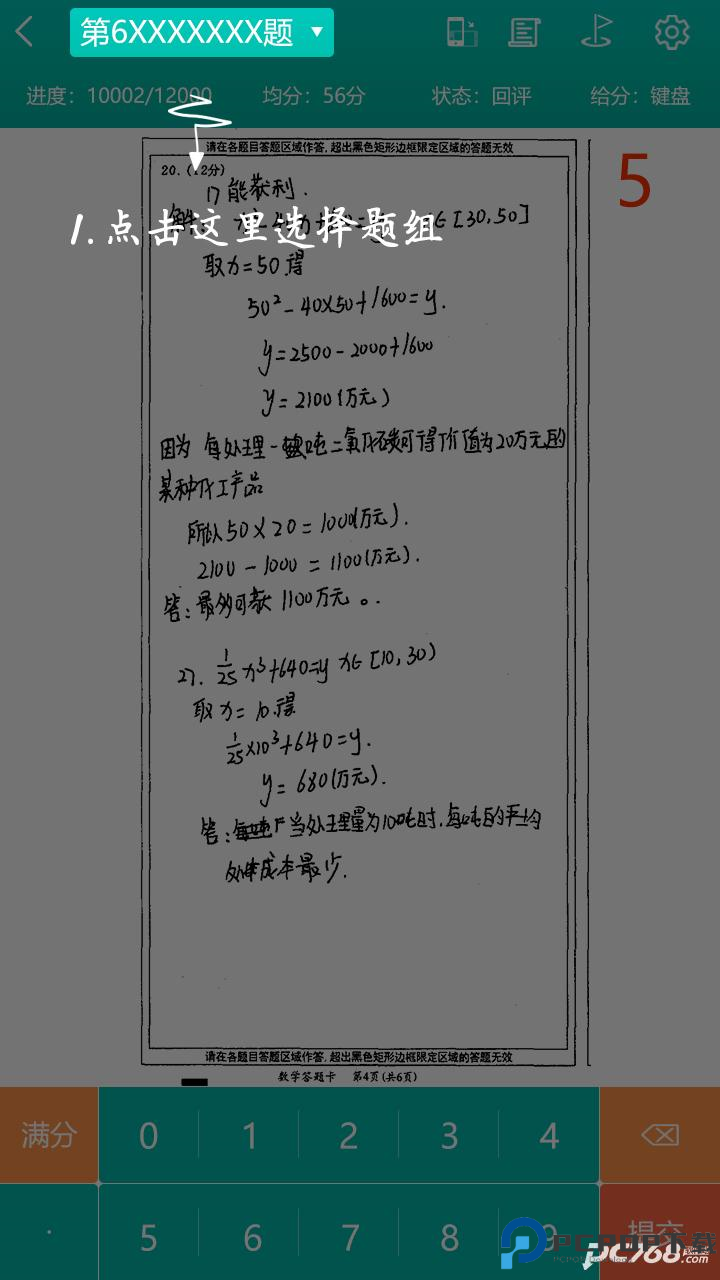 第6XXXXXXX题
进度：10002/12000 均分：56分 状态：回评 给分：键盘
请在各题目答题区域作答,超出黑色矩形边框限定区域的答题无效
20.（12分）
5
1）能获利.
1.点击这里选择题组
∈[30,50]
取x=50得
50²-40×50+1600=y.
y=2500-2000+1600
y=2100(万元)
因为 每处理一吨二氧化碳可得价值为20万元的
某种化工产品
所以50×20=1000(万元).
2100-1000=1100(万元).
答:最多可获1100万元。.
2). 1/25 x³+640=y x∈[10,30)
取x=10得
1/25×10³+640=y.
y=680(万元).
答: 当处理量为10吨时,每吨的平均
处理成本最少.
请在各题目答题区域作答,超出黑色矩形边框限定区域的答题无效
数学答题卡 第4页(共6页)
满分 0 1 2 3 4
. 5 6 7 8 9 提交
PCPOP下载
pc768.com